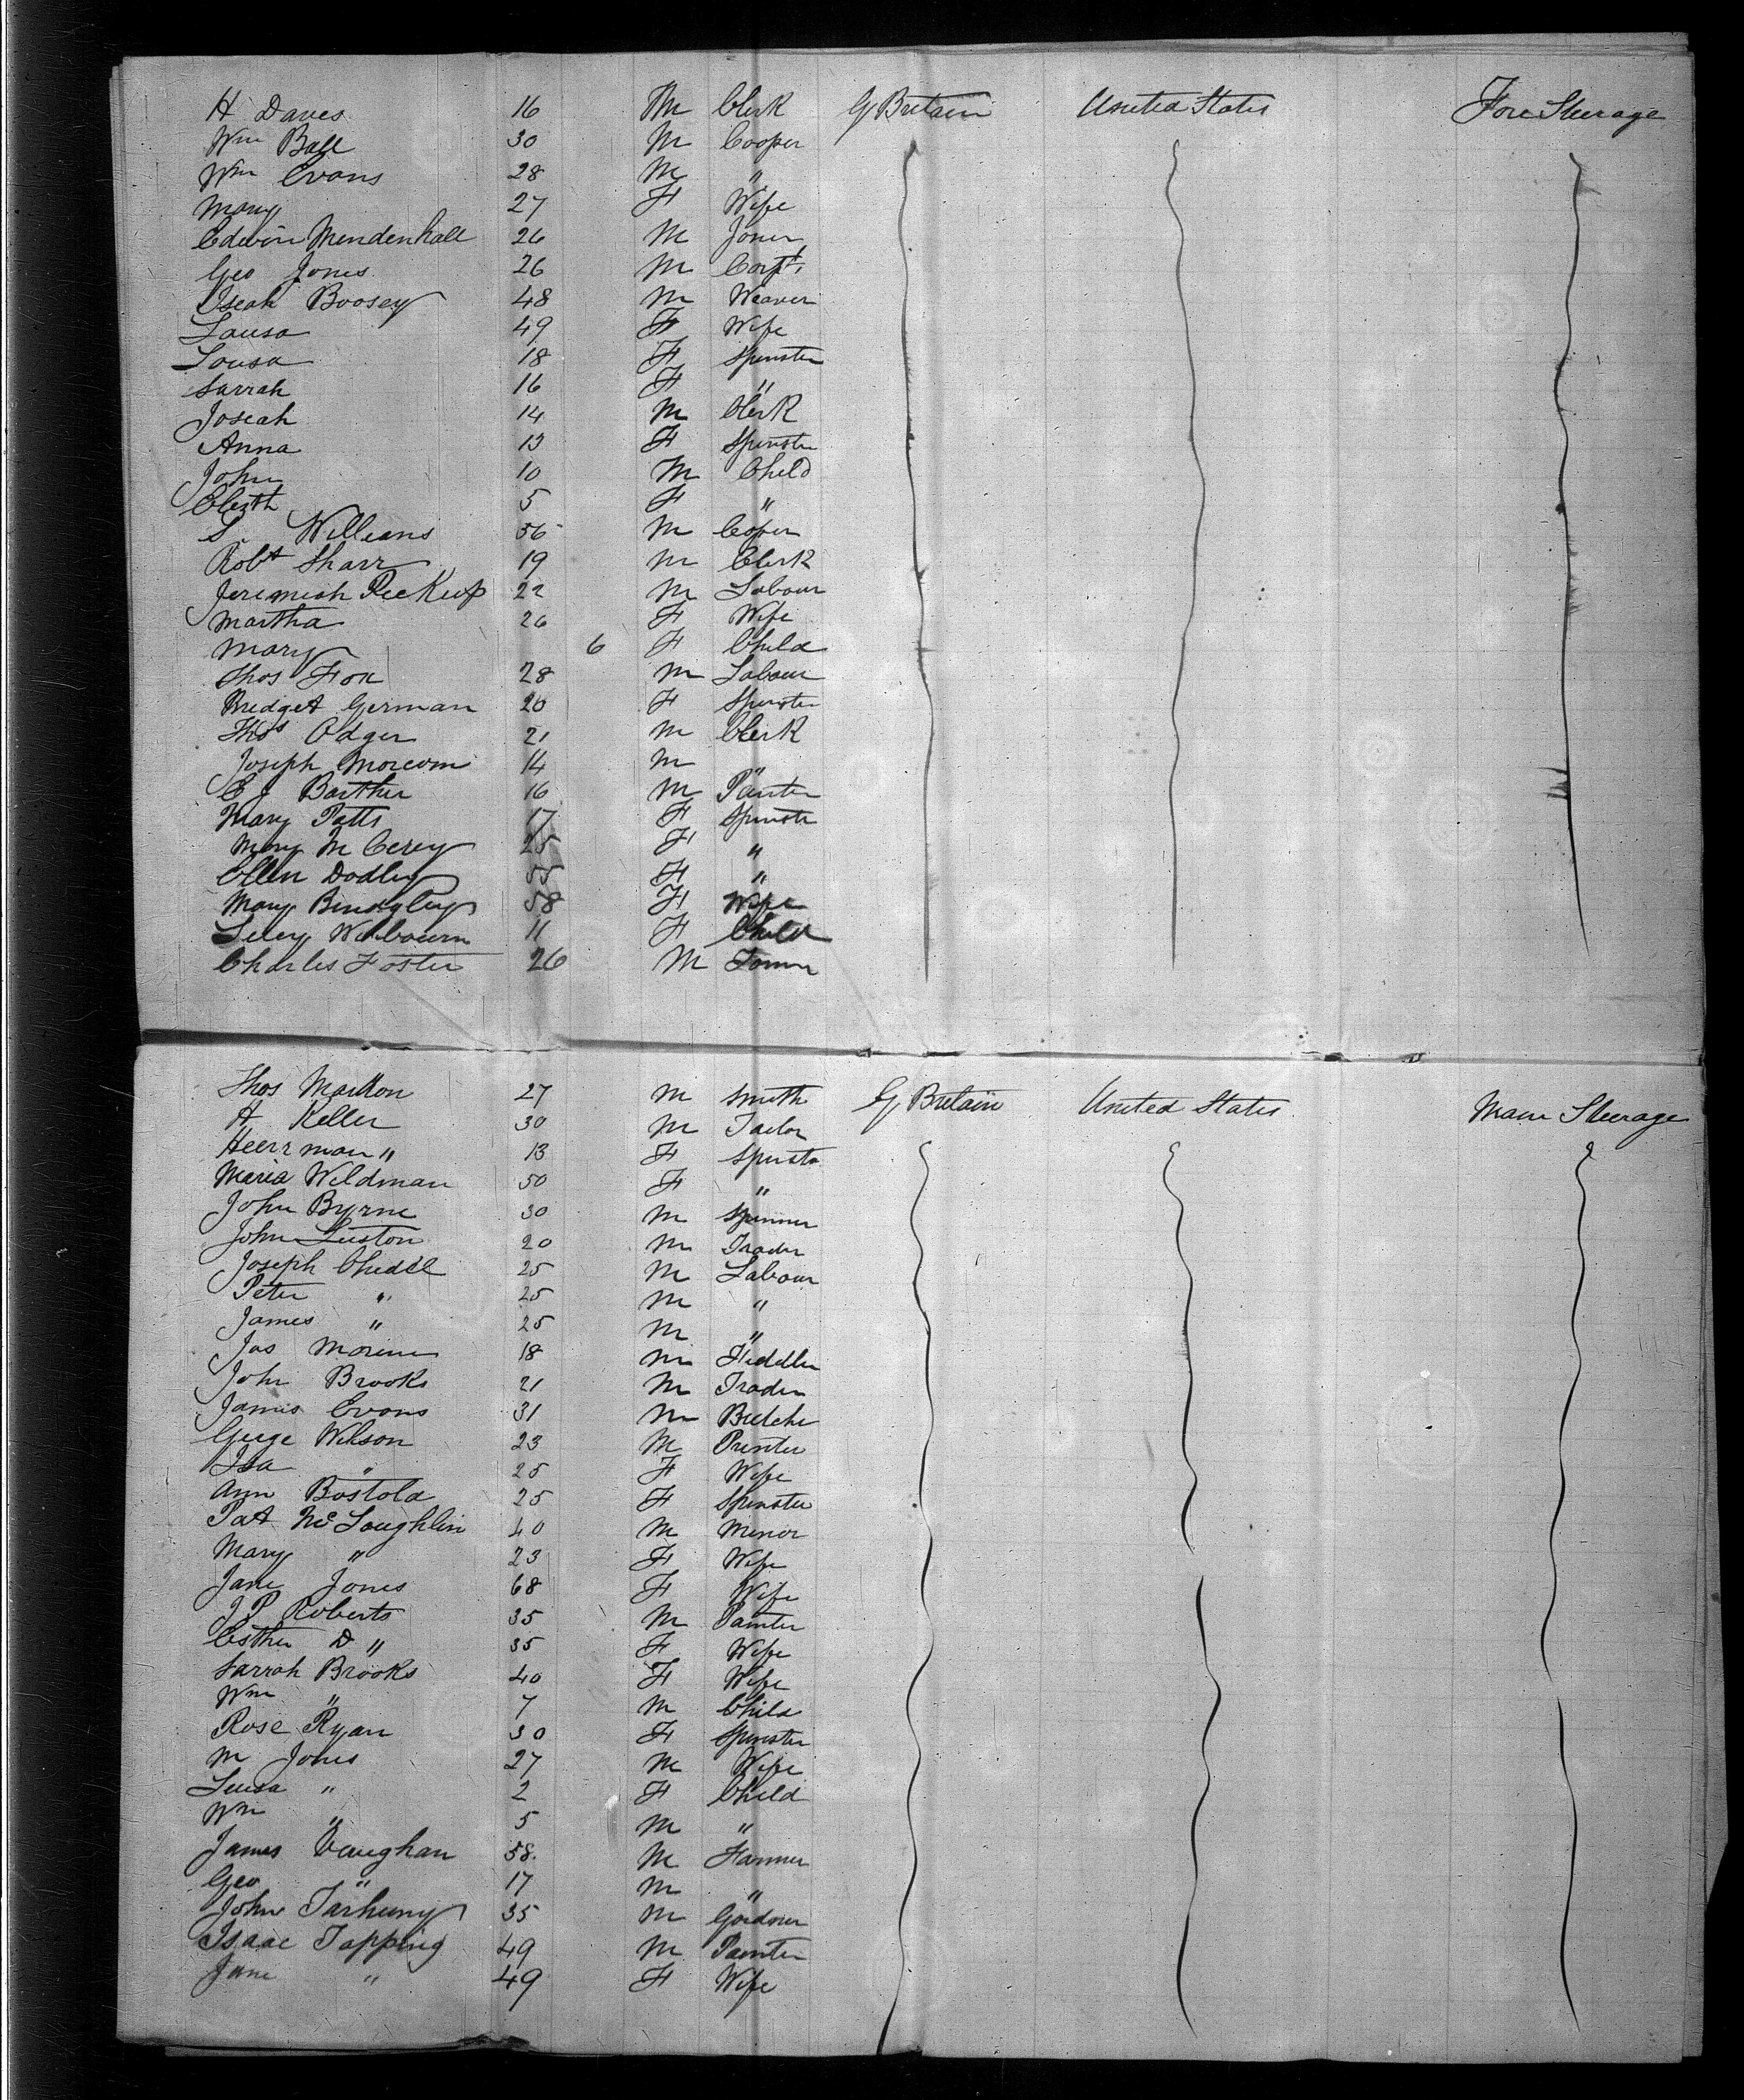 H Daves 16 M Clerk G Britain United States Fore Steerage
Wm Ball 30 M Cooper
Wm Evans 28 M "
Mary 27 F Wife
Edwin Mendenhall 26 M Joner
Geo Jones 26 M Carpt
Iseah Boosey 48 M Weaver
Lousa 49 F Wife
Lousa 18 F Spinster
Sarrah 16 F "
Joseah 14 M Clerk
Anna 13 F Spinster
John 10 M Child
Elizth 5 F "
S Williams 56 M Coper
Robt Sharr 19 M Clerk
Jeremiah Peckup 22 M Labour
Martha 26 F Wife
Mary 6 F Child
Thos Fox 28 M Labour
Bridget German 20 F Spinster
Thos Odger 21 M Clerk
Joseph Morcom 14 M "
C J Barther 16 M Painter
Mary Potts 17 F Spinster
Mary McCerey 25 F "
Ellen Dodley 55 F "
Mary Bindgley 58 F Wife
Lucy Welbourn 11 F Child
Charles Foster 26 M
Thos 27 M Smith G Britain United States Main Steerage
H Keller 30 M Tailor
Heerrman " 13 F Spinster
Maria Weldman 50 F "
John Byrne 30 M Spinner
John Luston 20 M Trader
Joseph Chedel 25 M Labour
Peter " 25 M "
James " 25 M "
Jas Morine 18 M Fiddler
John Brooks 21 M Trader
James Evans 31 M Butcher
George Wilson 23 M Printer
Isa " 25 F Wife
Ann Bostold 25 F Spinster
Pat McLoughlin 40 M Minor
Mary " 23 F Wife
Jane Jones 68 F Wife
J P Roberts 35 M Painter
Esther D " 35 F Wife
Sarrah Brooks 40 F Wife
Wm " 7 M Child
Rose Ryan 30 F Spinster
M Jones 27 M Wife
Luisa " 2 F Child
Wm " 5 M "
James Vaughan 58 M Farmer
Geo " 17 M "
John Tarhuny 35 M Gardner
Isaac Topping 49 M Painter
Jane " 49 F Wife